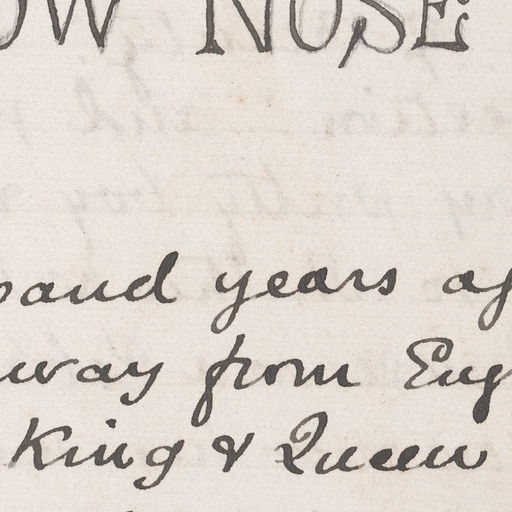 OW NOSE
sand years ag
away from Eng
King & Queen